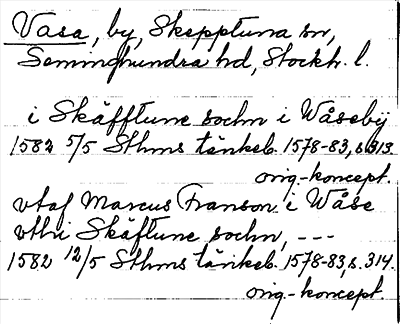 Vasa, by, Skepptuna sn,
Seminghundra hd, Stockh. l.
i Skäfftune sochn i Wåseby
1582 5/5 Sthms tänkeb. 1578-83, s. 313.
orig.-koncept.
vtaf Marcus Franson i Wåse
vthi Skäftune sochn, ---
1582 12/5 Sthms tänkeb. 1578-83, s. 314.
orig.-koncept.